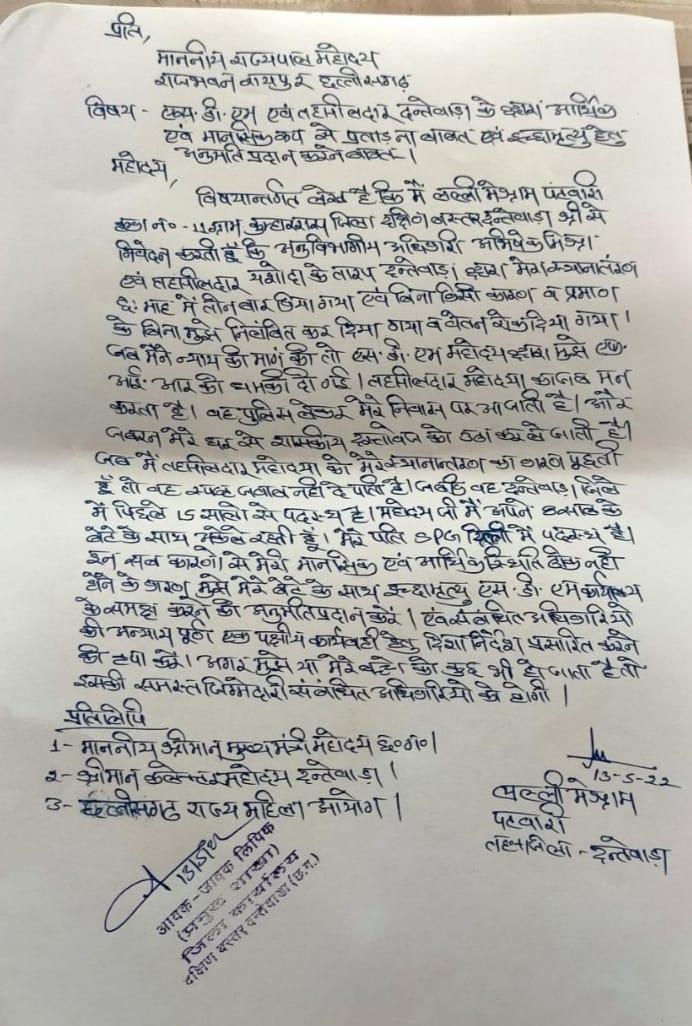 प्रति,
माननीय राज्यपाल महोदय
राजभवन रायपुर छत्तीसगढ़
विषय - एस. डी. एम एवं तहसीलदार दन्तेवाड़ा के द्वारा आर्थिक
एवं मानसिक रूप से प्रताड़ना बाबत एवं इच्छामृत्यु हेतु
अनुमति प्रदान करने बाबत।
महोदय,
विषयान्तर्गत लेख है कि मैं लल्ली मेश्राम पटवारी
हल्का नं०- 11 ग्राम कुम्हाररास जिला दक्षिण बस्तर दन्तेवाड़ा श्री से
निवेदन करती हूँ कि अनुविभागीय अधिकारी अभिषेक मिश्रा
एवं तहसीलदार यशोदा केतारप दन्तेवाड़ा द्वारा मेरा स्थानांतरण
छः माह में तीन बार किया गया एवं बिना किसी कारण व प्रमाण
के बिना मुझे निलंबित कर दिया गया व वेतन रोक दिया गया।
जब मैंने न्याय की मांग की तो एस. डी. एम महोदय द्वारा मुझे एफ.
आई. आर की धमकी दी गई। तहसीलदार महोदया का जब मन
करता है। वह पुलिस लेकर मेरे निवास पर आ जाती है। और
जबरन मेरे घर से शासकीय दस्तावेज को उठा कर ले जाती है।
जब मैं तहसीलदार महोदया को मेरे स्थानान्तरण का कारण पूछती
हूँ तो वह स्पष्ट जवाब नहीं दे पाती है। जबकि वह दन्तेवाड़ा जिले
में पिछले 15 सालो से पदस्थ है। महोदय जी मैं अपने साल के
बेटे के साथ अकेले रहती हूं। मेरे पति SPG दिल्ली में पदस्थ है।
इन सब कारणो से मेरी मानसिक एवं आर्थिक स्थिति ठीक नही
होने के कारण मुझे मेरे बेटे के साथ इच्छामृत्यु एस. डी. एम कार्यालय
के समक्ष करने की अनुमति प्रदान करें। एवं संबंधित अधिकारियो
की अन्याय पूर्ण एक पक्षीय कार्यवाही हेतु दिशा निर्देश प्रसारित करने
की कृपा करें। अगर मुझे या मेरे बेटे को कुछ भी हो जाता है तो
इसकी समस्त जिम्मेदारी संबंधित अधिकारियो की होगी।
प्रतिलिपि
1- माननीय श्रीमान् मुख्य मंत्री महोदय छ०ग०।
2- श्रीमान कलेक्टर महोदय दन्तेवाड़ा।
3- छत्तीसगढ़ राज्य महिला आयोग।
13-5-22
लल्ली मेश्राम
पटवारी
जिला - दन्तेवाड़ा
आवक-जावक लिपिक
जिला कार्यालय
दक्षिण बस्तर दन्तेवाड़ा (छ.ग.)